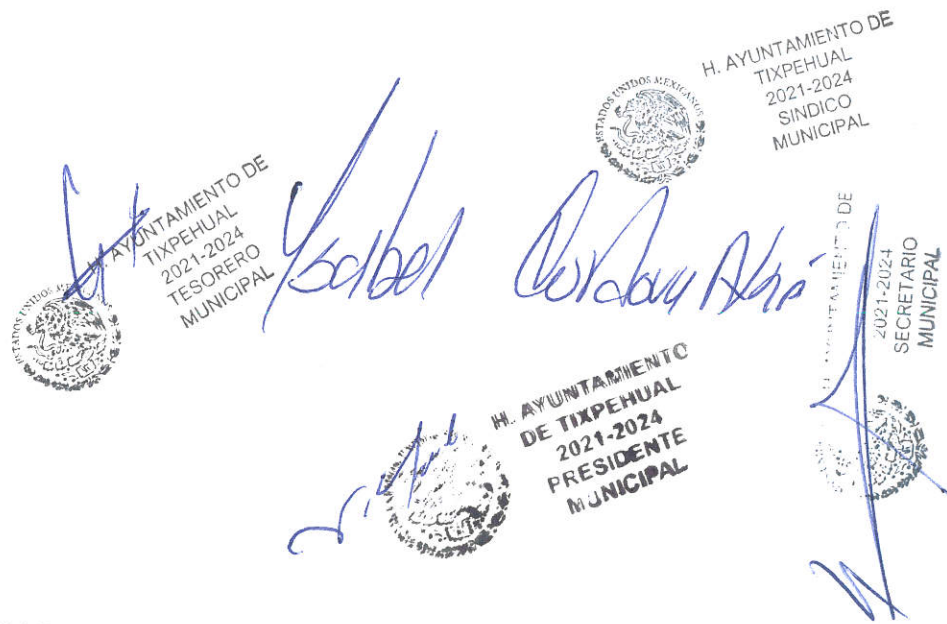 H. AYUNTAMIENTO DE
TIXPEHUAL
2021-2024
SINDICO
MUNICIPAL
ESTADOS UNIDOS MEXICANOS
H. AYUNTAMIENTO DE
TIXPEHUAL
2021-2024
TESORERO
MUNICIPAL
ESTADOS UNIDOS
Ysabel Cordova
H. AYUNTAMIENTO DE
2021-2024
SECRETARIO
MUNICIPAL
H. AYUNTAMIENTO
DE TIXPEHUAL
2021-2024
PRESIDENTE
MUNICIPAL